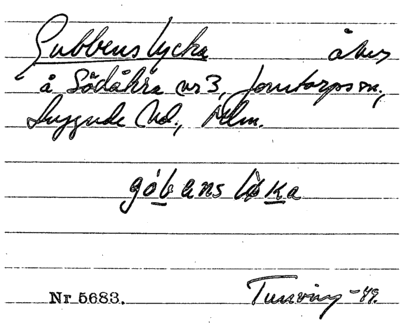 Gubbens lycka åker
å Södåkra nr 3, Jonstorps sn,
Luggude hd,
Nr 5683.
Tuneving -49.